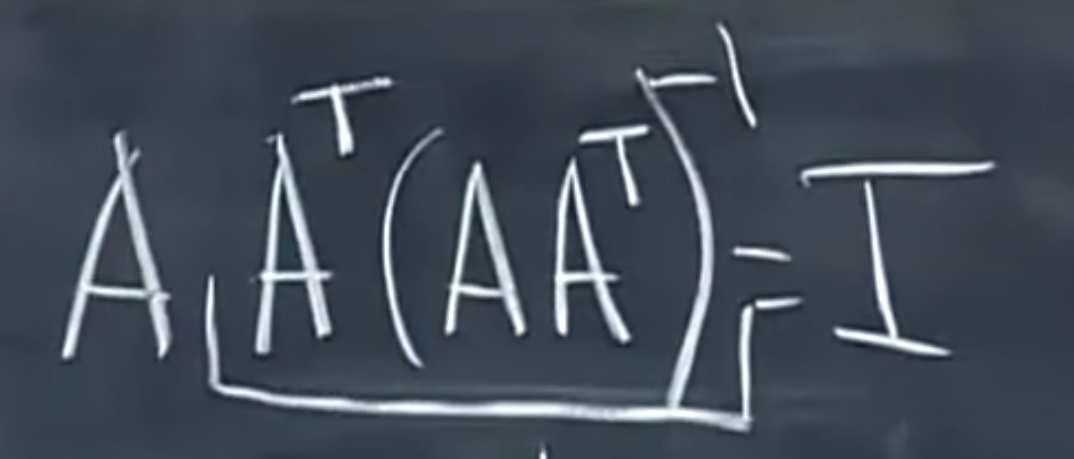 A Aᵀ(AAᵀ)⁻¹ = I